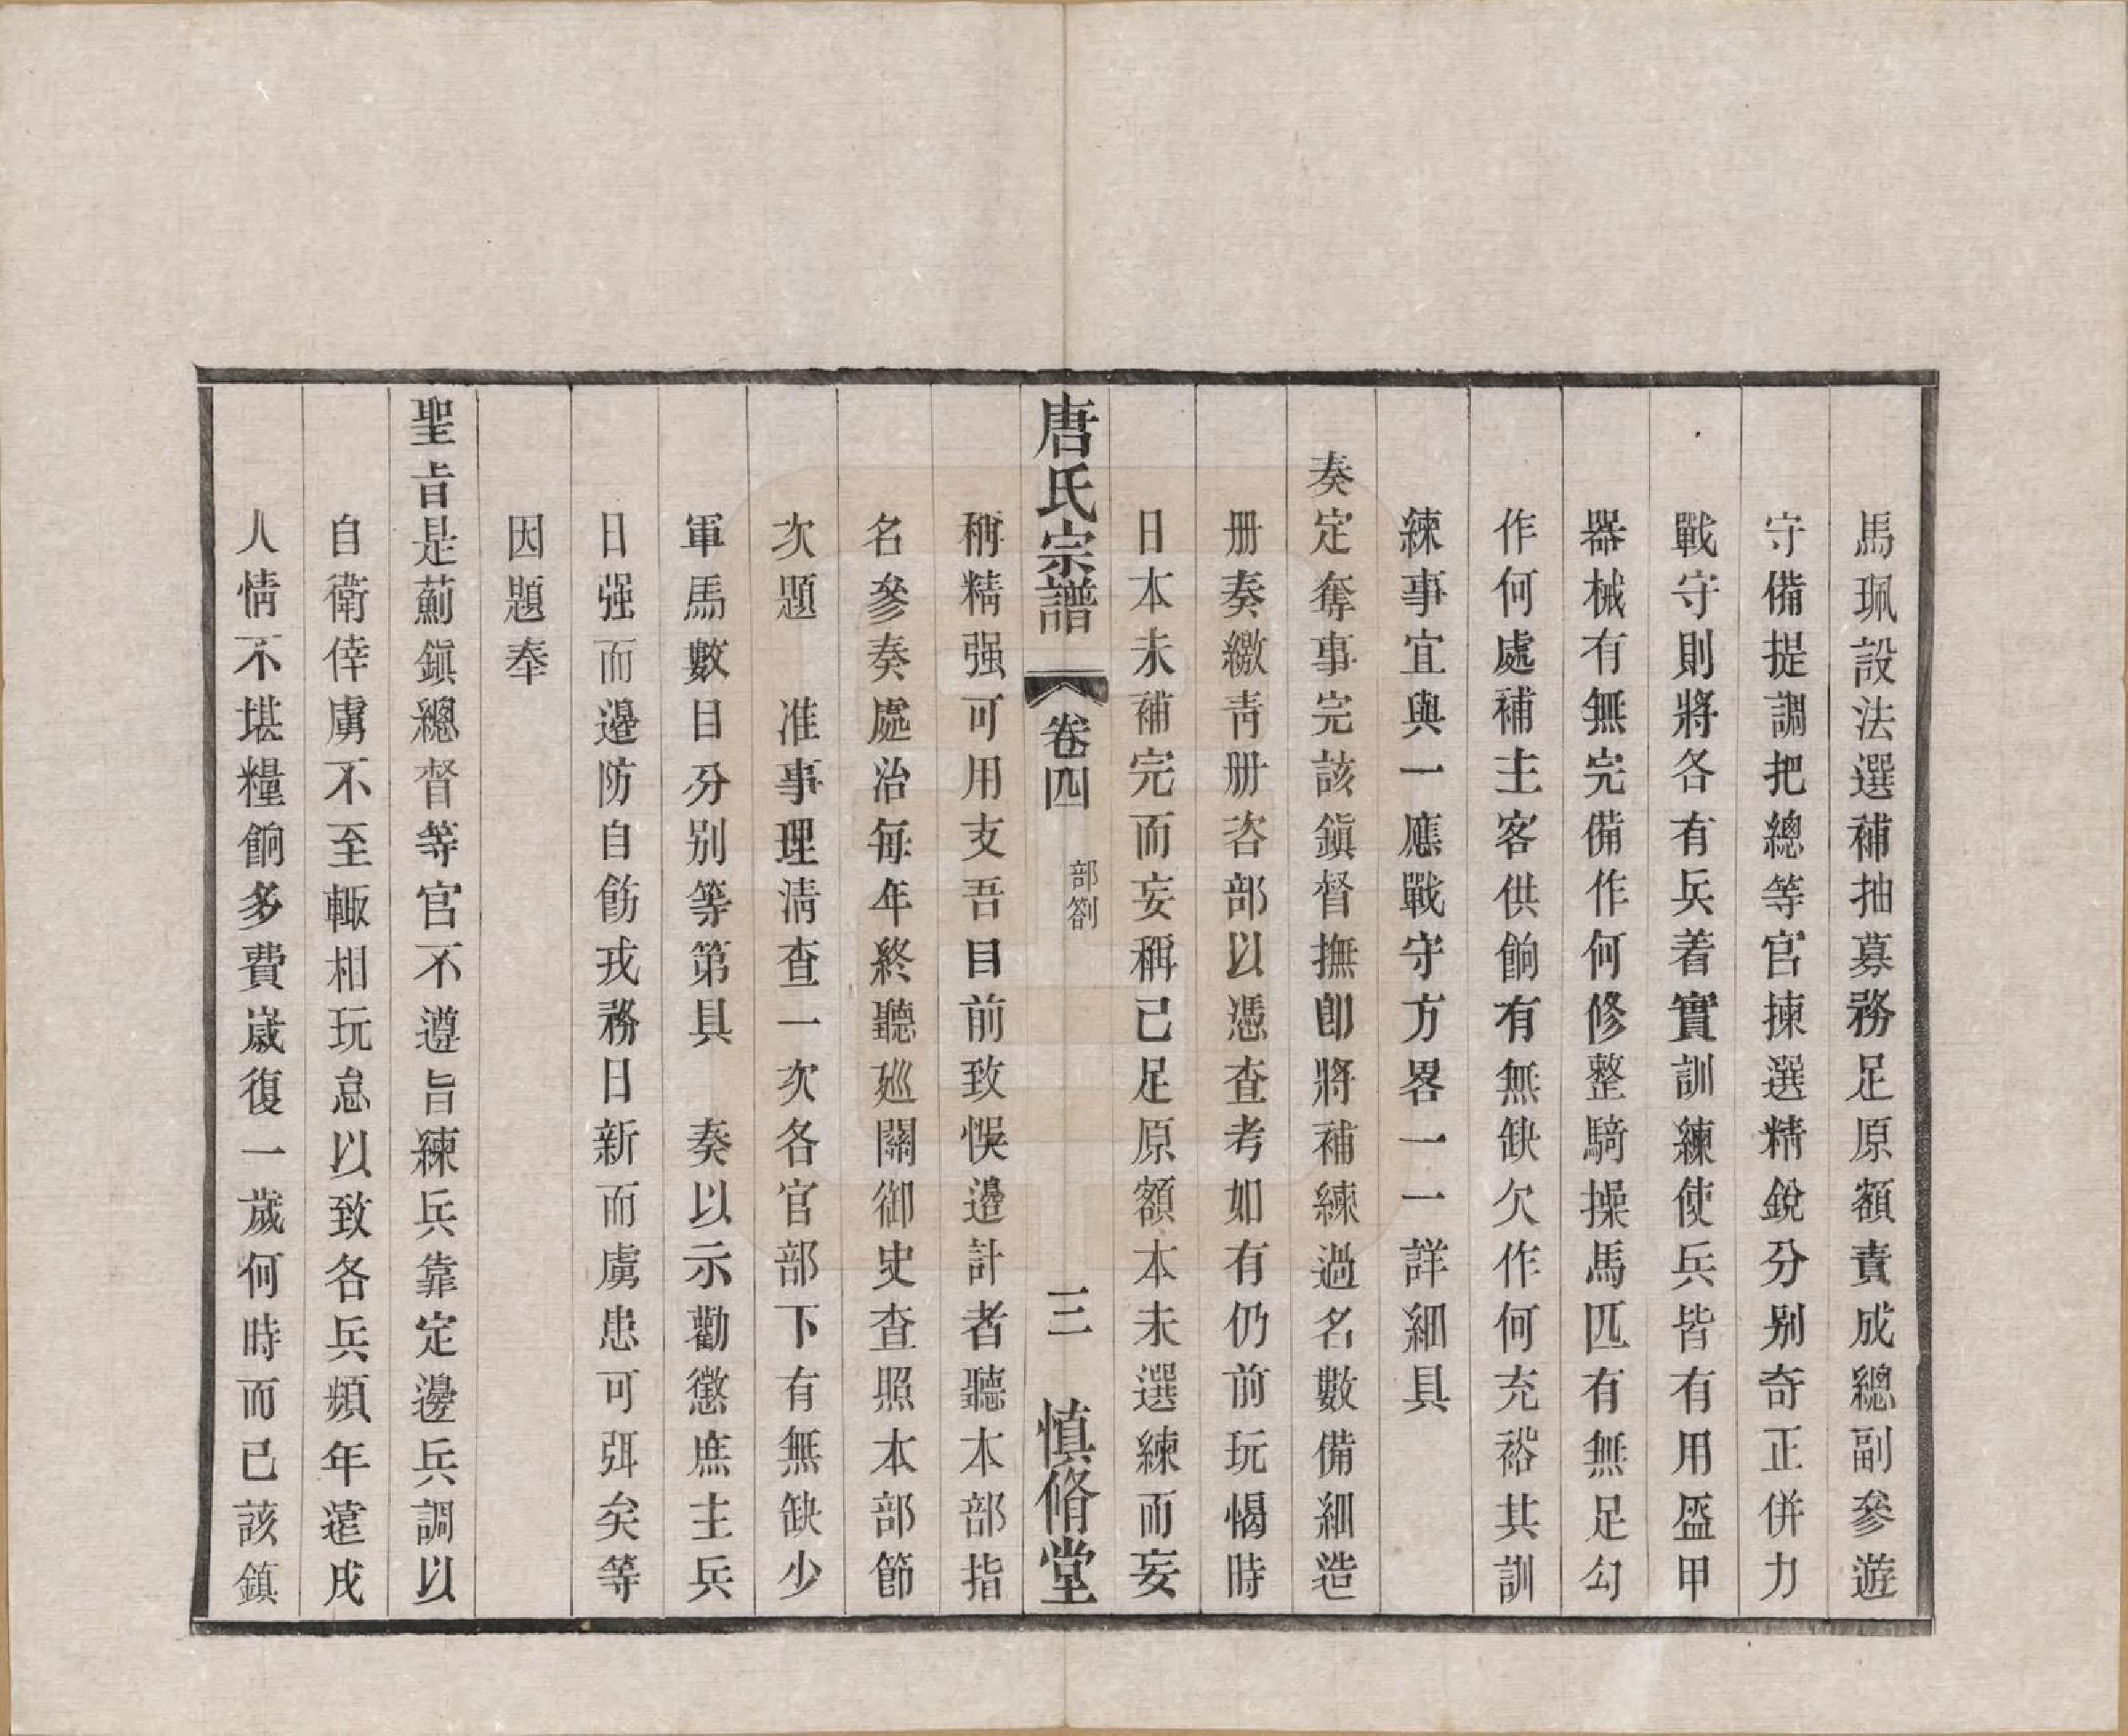 馬珮設法選補抽募務足原額責成總副參遊
守備提調把總等官揀選精銳分别奇正併力
戰守則將各有兵着實訓練使兵皆有用盔甲
器械有無完備作何修整騎操馬匹有無足勾
作何處補主客供餉有無缺欠作何充裕共訓
練事宜與一應戰守方畧一一詳細具
奏定奪事完該鎭督撫卽將補練過名數備細造
册奏繳靑册咨部以憑查考如有仍前玩愒時
日本未補完而妄稱已足原額本未選練而妄
唐氏宗譜 卷四 部劄 三 慎脩堂
稱精强可用支吾目前致悞邊計者聽本部指
名參奏處治每年終聽廵關御史查照本部節
次題 准事理淸查一次各官部下有無缺少
軍馬數目分别等第具 奏以示勸懲庶主兵
日强而邊防自飭戎務日新而虜患可弭矣等
因題奉
聖旨是薊鎭總督等官不遵旨練兵靠定邊兵調以
自衛倖虜不至輙相玩怠以致各兵頻年遣戍
人情不堪糧餉多費歲復一歲何時而已該鎮